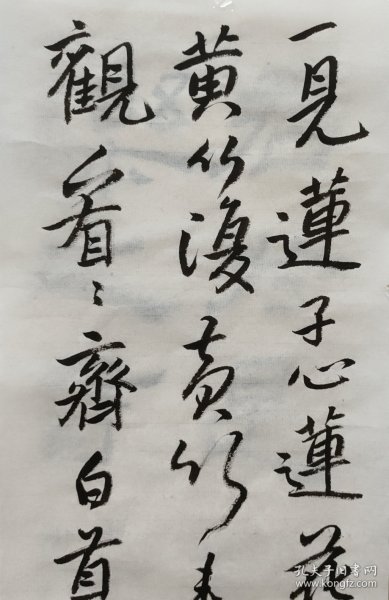 一見蓮子心蓮花
黄竹復黄竹
觀看〻齊白首
孔夫子旧书网
www.kongfz.com